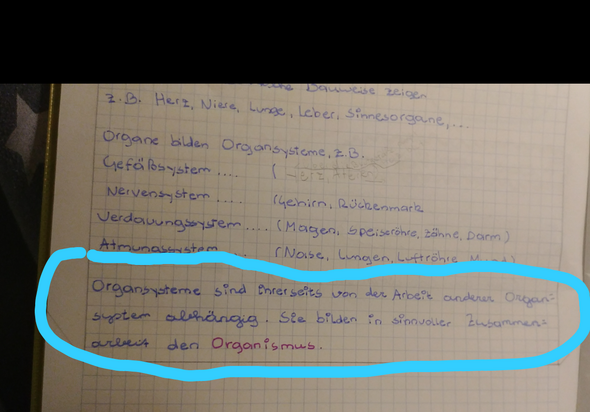 Bauweise zeigen
z.B. Herz, Niere, Lunge, Leber, Sinnesorgane,...
Organe bilden Organsysteme, z.B.
Gefäßsystem .... (
Nervensystem .... (Gehirn, Rückenmark
Verdauungssystem .... (Magen, Speiseröhre, Zähne, Darm)
Atmungssystem .... (Nase, Lungen, Luftröhre, Mund)
Organsysteme sind ihrerseits von der Arbeit anderer Organ=
system abhängig. Sie bilden in sinnvoller Zusammen=
arbeit den Organismus.